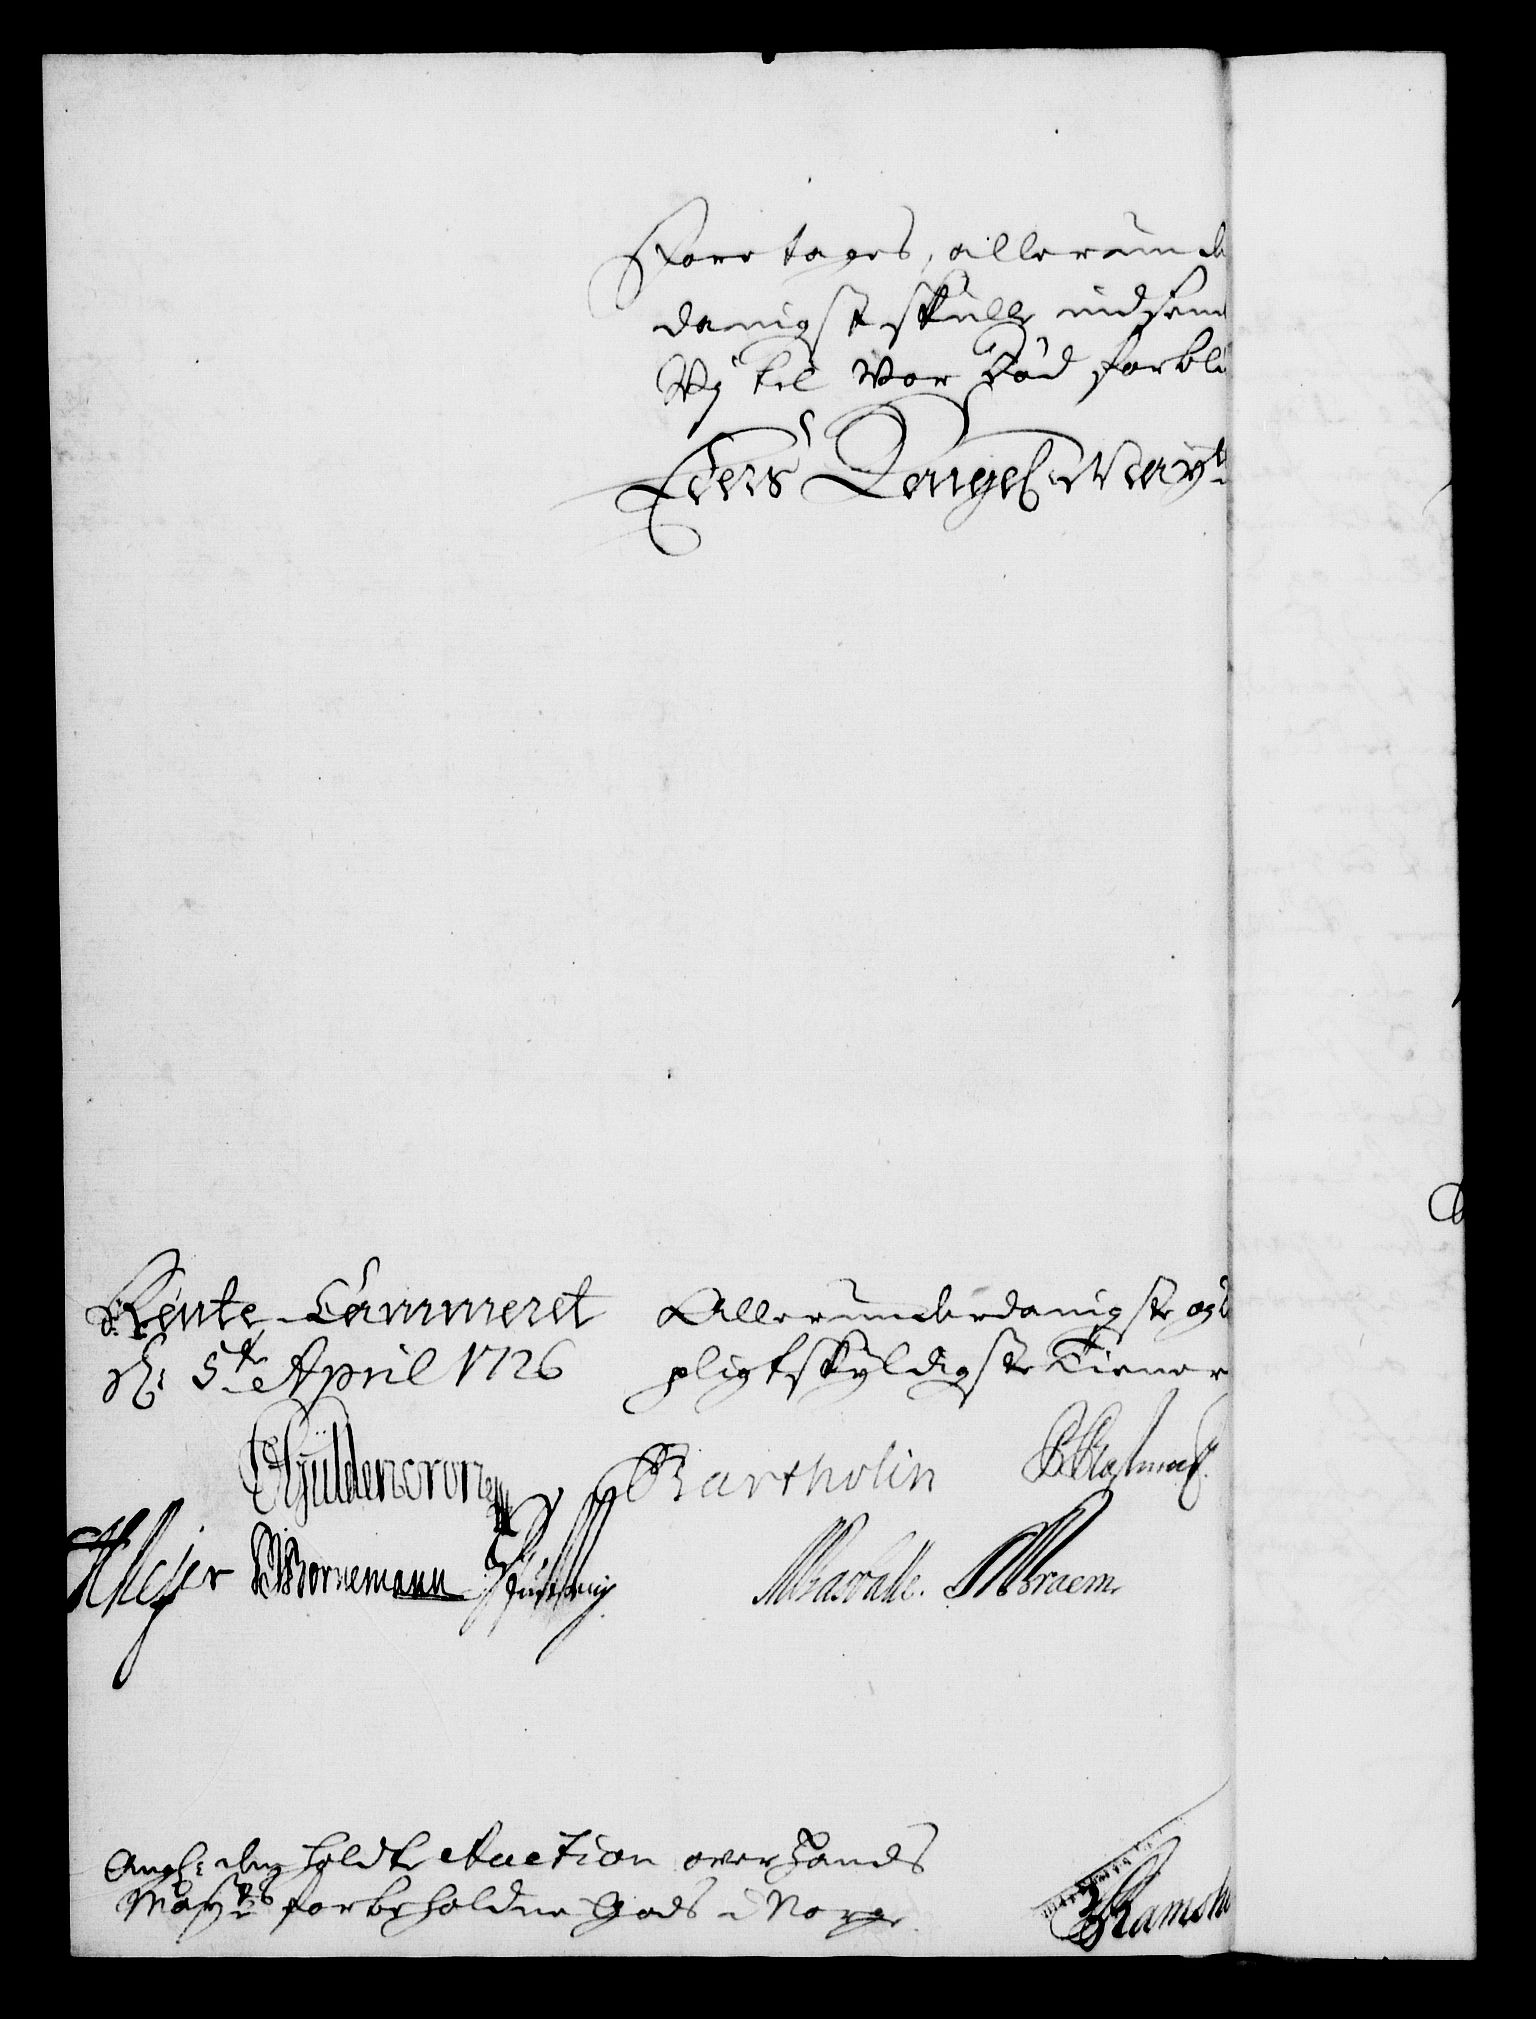 Foretages, allerunde
danigst skulle indsend
Vÿ til Vor Död forbli
Eders Kongel. Mayts
Rente-Cammeret
d: 5te April 1726
Allerunderdanigste og
pligtskyldigste Tiener
Gyldencrone
Bartholin
Meÿer
Bornemann
Braem
Ang: den holdte Auction over Hands
Mayts forbeholdne Gods i Norge.
Ramsh